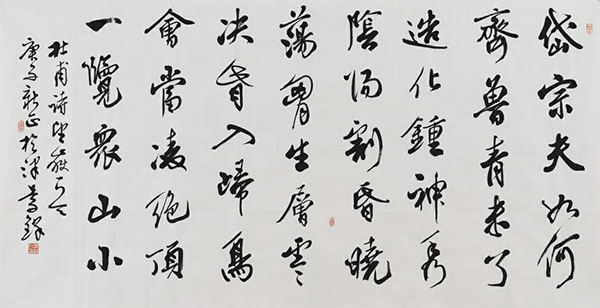 岱宗夫如何
齊魯青未了
造化鍾神秀
陰陽割昏曉
蕩胷生層雲
决眥入歸鳥
會當凌絕頂
一覽衆山小
杜甫詩望嶽
庚子新正於津